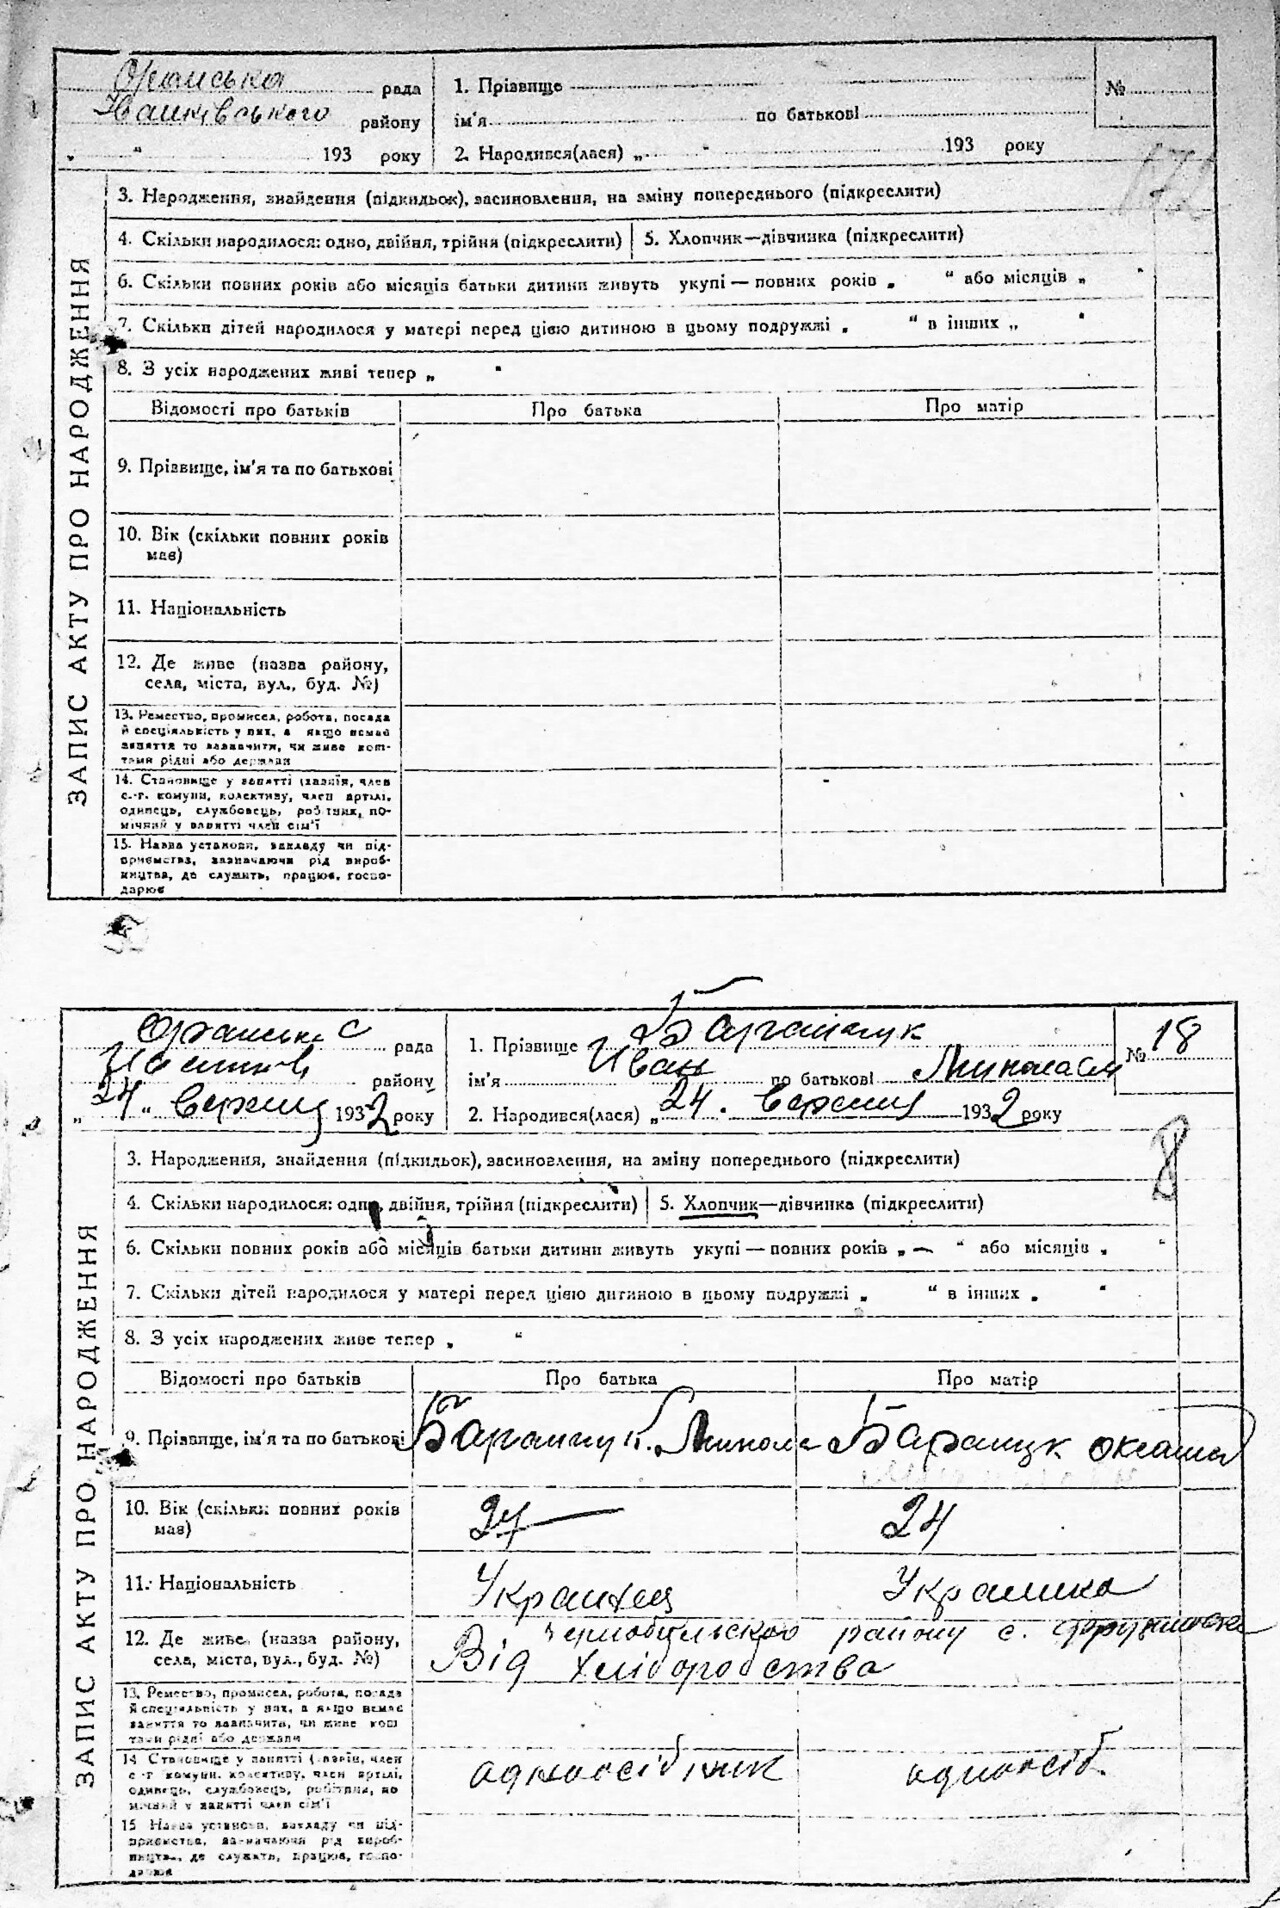 Оранська рада
Іванківського району
„ “ 193 року
1. Прізвище
ім'я по батькові
2. Народився(лася) „ “ 193 року
№
172
ЗАПИС АКТУ ПРО НАРОДЖЕННЯ
3. Народження, знайдення (підкидьок), засиновлення, на зміну попереднього (підкреслити)
4. Скільки народилося: одно, двійня, трійня (підкреслити) 5. Хлопчик—дівчинка (підкреслити)
6. Скільки повних років або місяців батьки дитини живуть укупі — повних років „ “ або місяців „ “
7. Скільки дітей народилося у матері перед цією дитиною в цьому подружжі „ “ в інших „ “
8. З усіх народжених живі тепер „ “
Відомості про батьків Про батька Про матір
9. Прізвище, ім'я та по батькові
10. Вік (скільки повних років
має)
11. Національність
12. Де живе (назва району,
села, міста, вул., буд. №)
13. Ремество, промисел, робота, посада
й спеціяльність у них, а якщо немає
заняття то зазначити, чи живе кош-
тами рідні або держави
14. Становище у занятті (хазяїн, член
с.-г. комуни, колективу, член артілі,
одинець, службовець, робітник, по-
мічний у занятті член сім'ї
15. Назва установи, закладу чи під-
приємства, зазначаючи рід вироб-
ництва, де служить, працює, госпо-
дарює
рада
району
„24„ вересня 1932 року
1. Прізвище
ім'я Иван по батькові
2. Народився(лася) „24. вересня 1932 року
№ 18
ЗАПИС АКТУ ПРО НАРОДЖЕННЯ
3. Народження, знайдення (підкидьок), засиновлення, на зміну попереднього (підкреслити)
4. Скільки народилося: одно, двійня, трійня (підкреслити) 5. Хлопчик—дівчинка (підкреслити)
6. Скільки повних років або місяців батьки дитини живуть укупі — повних років „ — “ або місяців „ “
7. Скільки дітей народилося у матері перед цією дитиною в цьому подружжі „ “ в інших „ “
8. З усіх народжених живе тепер „ “
Відомості про батьків Про батька Про матір
9. Прізвище, ім'я та по батькові Микола
10. Вік (скільки повних років
має) 27 24
11. Національність Украинец Украинка
12. Де живе (назва району,
села, міста, вул., буд. №) Чернобильского району с.
Від хліборобства
13. Ремество, промисел, робота, посада
й спеціяльність у них, а якщо немає
заняття то зазначить, чи живе кош
тами рідні або держави
14 Становище у занятті (хазяїн, член
с-г комуни, колективу, член артілі,
одинець, службовець, робітник, по
мічний у занятті член сім'ї одноосібник одноосіб.
15 Назва установи, закладу чи під-
приємства, зазначаючи рід вироб-
ництва, де служить, працює, госпо-
дарює